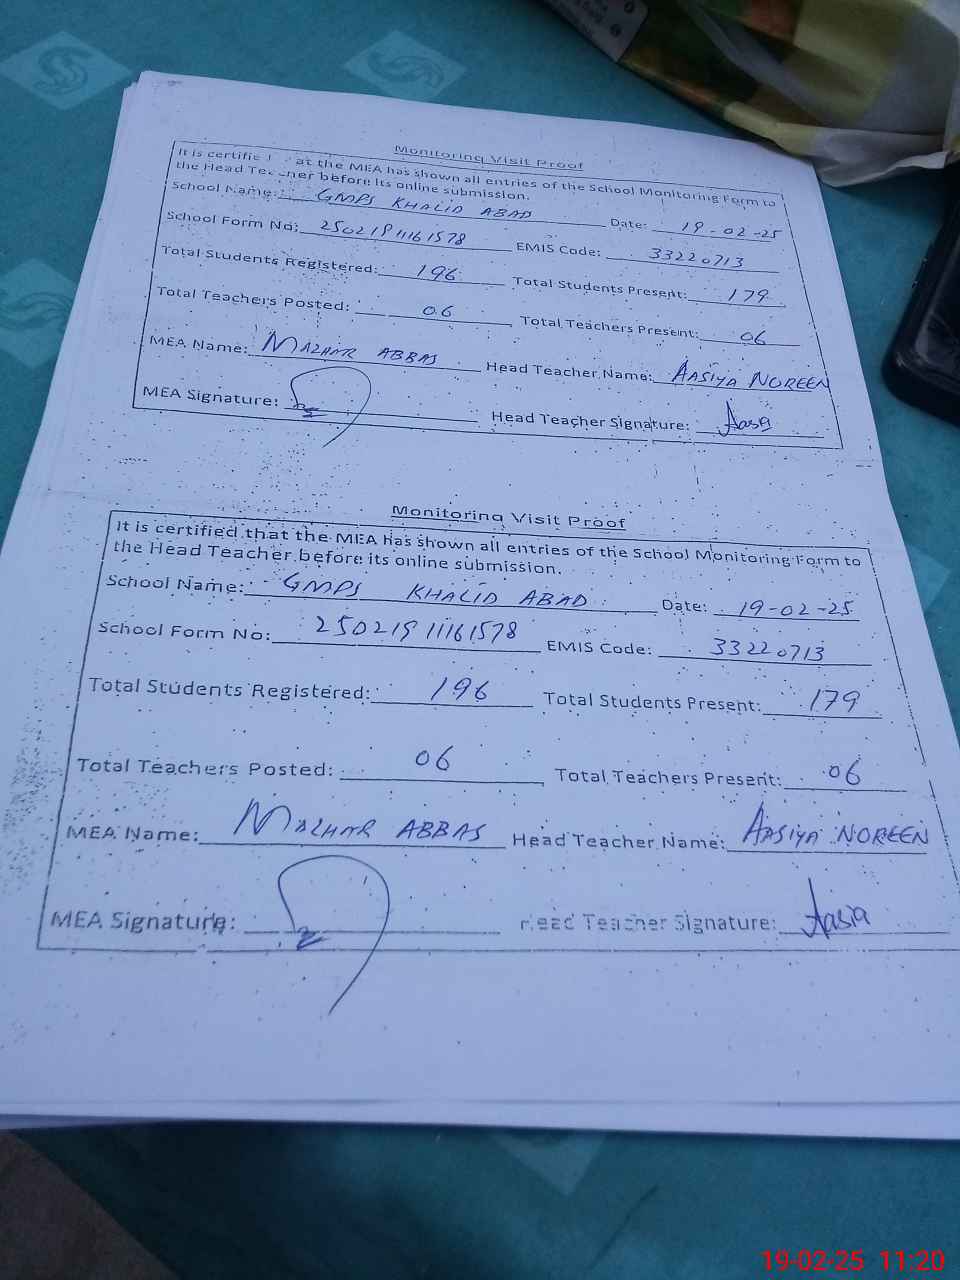 Monitoring Visit Proof
It is certifie at the MEA has shown all entries of the School Monitoring Form to
the Head Teacher before its online submission.
School Name: GMPS KHALID ABAD Date: 19-02-25
School Form No: 25021911161578 EMIS Code: 33220713
Total Students Registered: 196 Total Students Present: 179
Total Teachers Posted: 06 Total Teachers Present: 06
MEA Name: MAZHAR ABBAS Head Teacher Name: AASIYA NOREEN
MEA Signature: Head Teacher Signature: Aasia
Monitoring Visit Proof
It is certified that the MEA has shown all entries of the School Monitoring Form to
the Head Teacher before its online submission.
School Name: GMPS KHALID ABAD Date: 19-02-25
School Form No: 25021911161578 EMIS Code: 33220713
Total Students Registered: 196 Total Students Present: 179
Total Teachers Posted: 06 Total Teachers Present: 06
MEA Name: MAZHAR ABBAS Head Teacher Name: AASIYA NOREEN
MEA Signature: Head Teacher Signature: Aasia
19-02-25 11:20